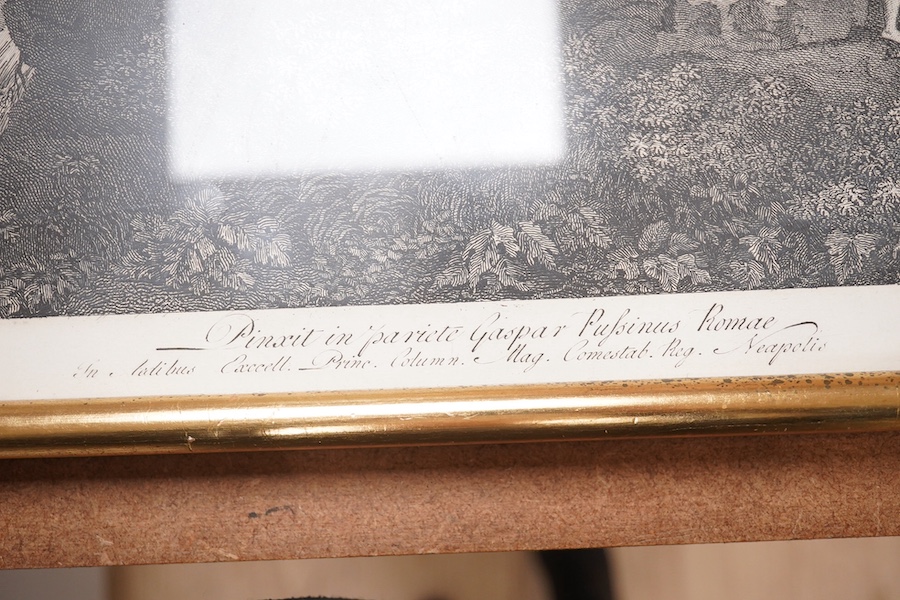 Pinxit in pariete Gaspar Pussinus Romae
In Aedibus Excell. Princ. Column. Mag. Comestab. Reg. Neapolis